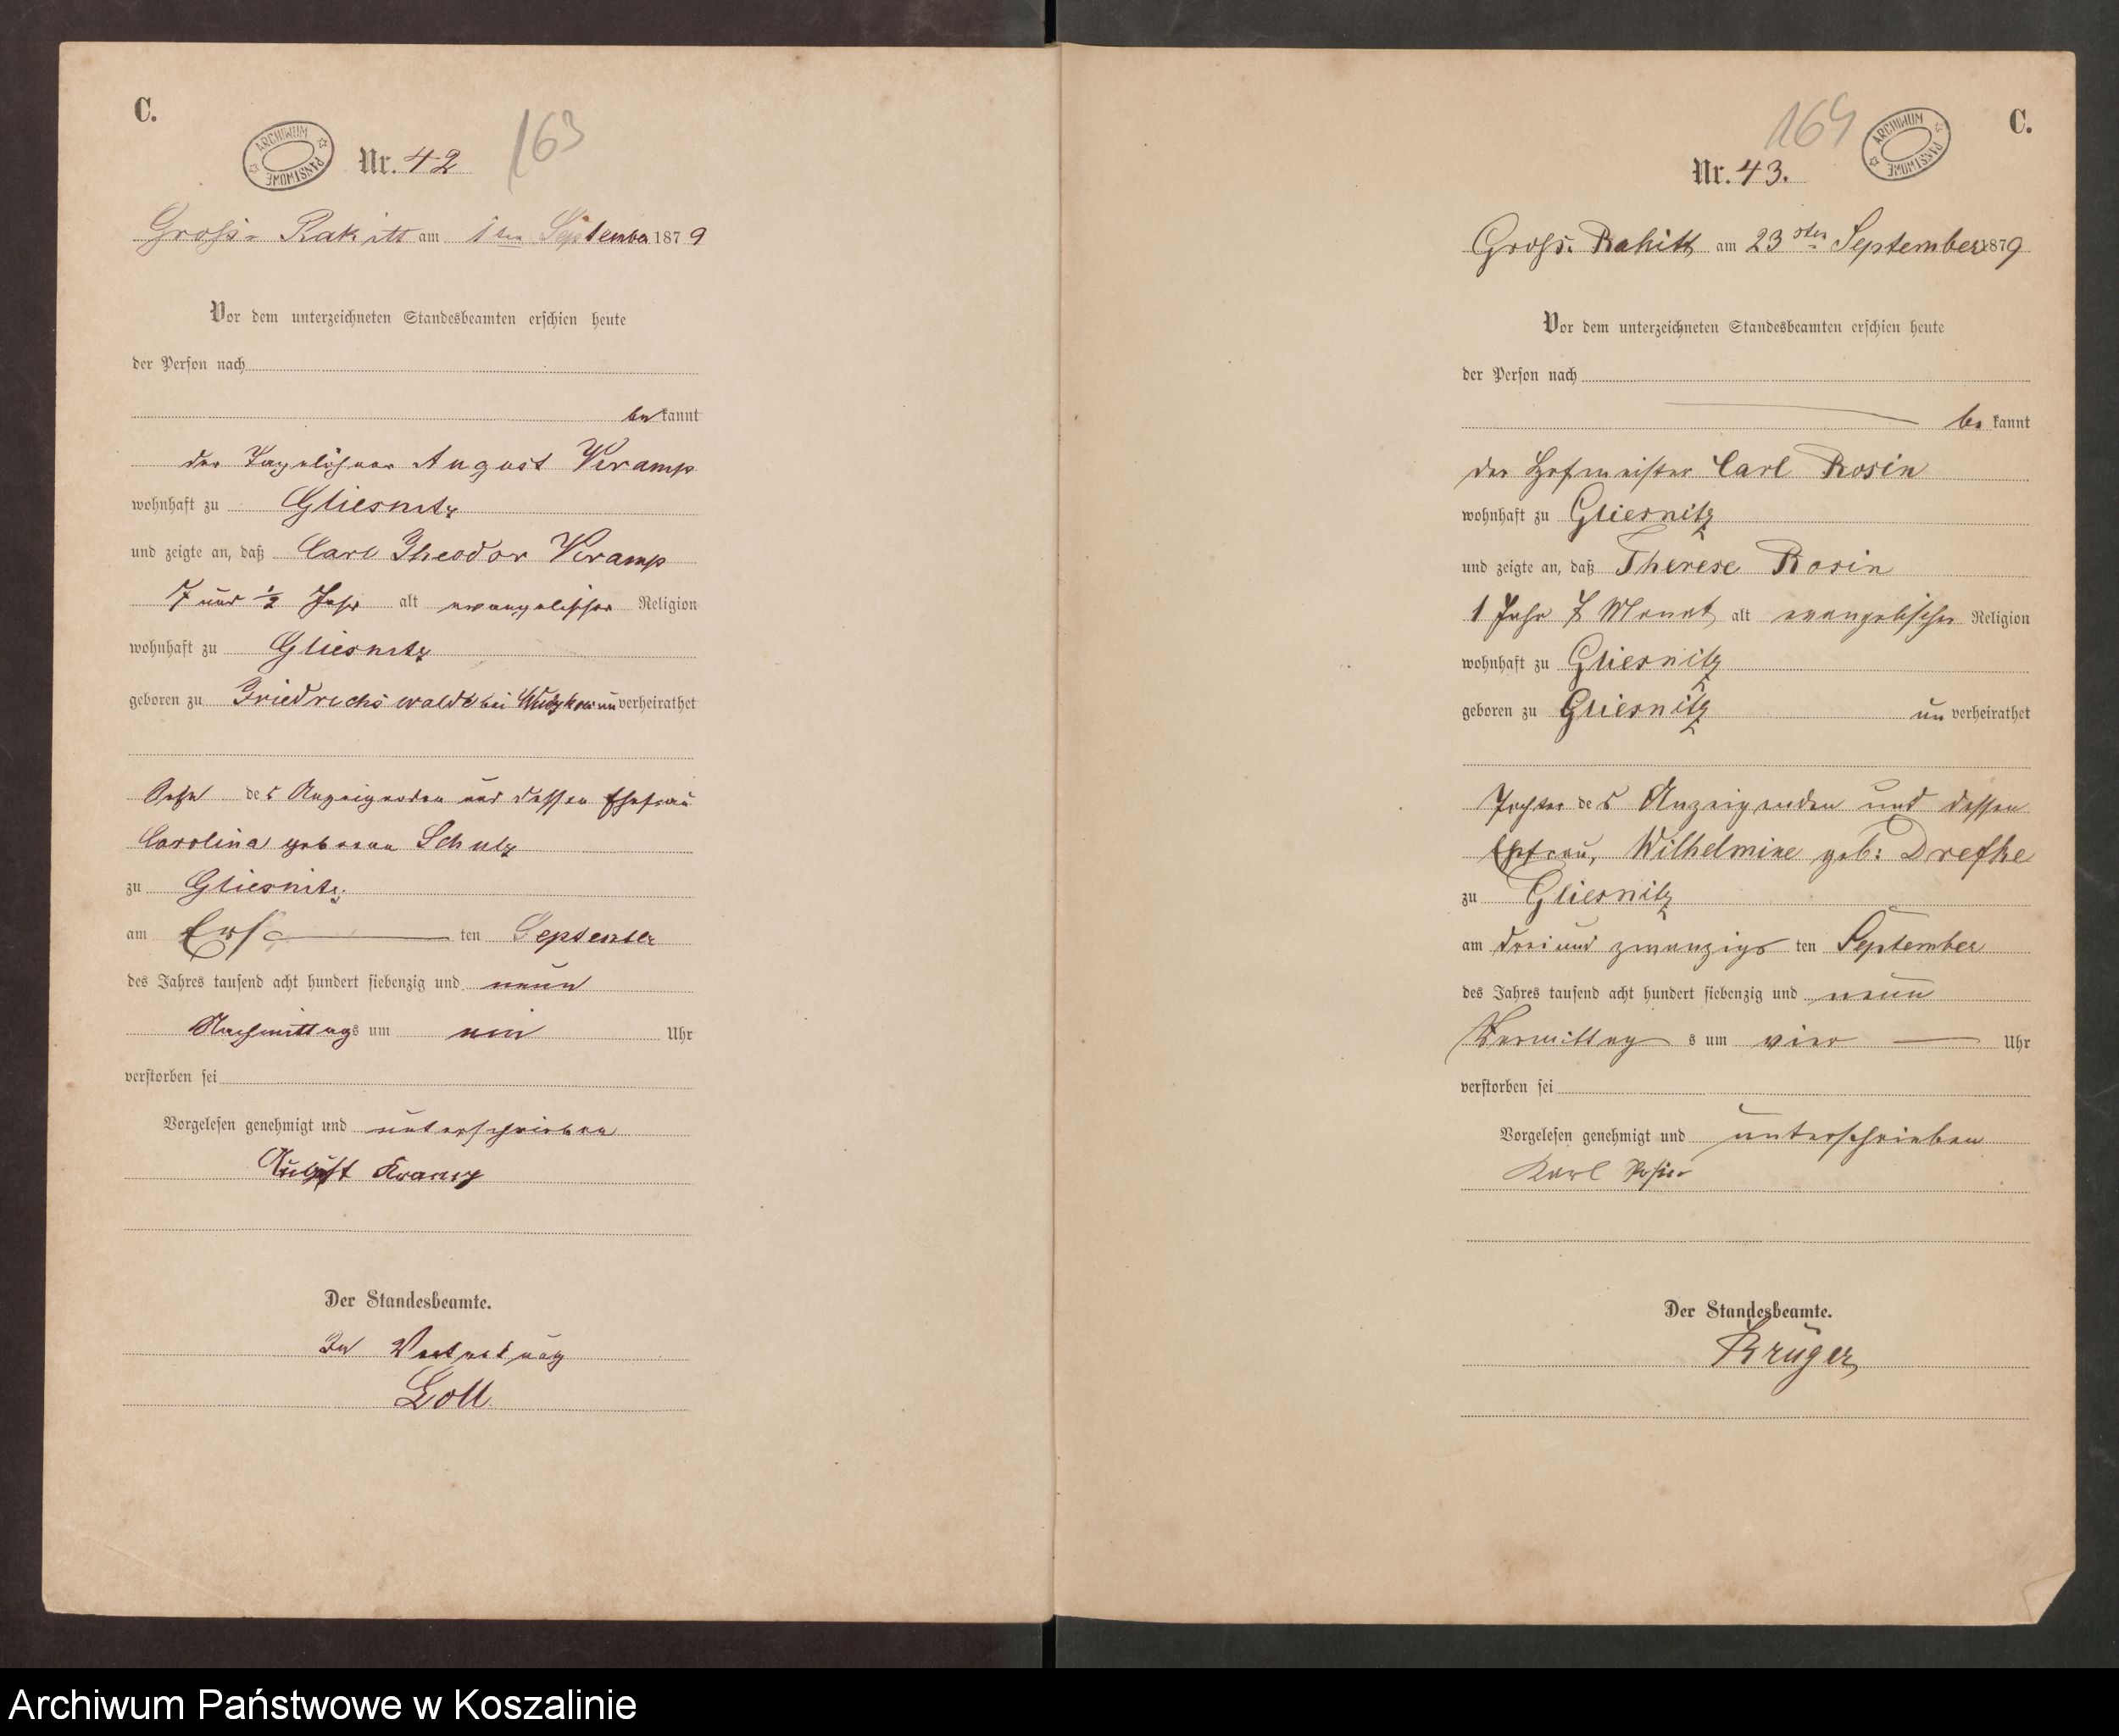 C.
ARCHIWUM PAŃSTWOWE
Nr. 42
163
Gross-Rakitt am 1ten September 1879
Vor dem unterzeichneten Standesbeamten erschien heute
der Person nach
bekannt
der Tagelöhner August Kramp
wohnhaft zu Gliesnitz
und zeigte an, daß Carl Theodor Kramp
7 und ½ Jahr alt evangelischer Religion
wohnhaft zu Gliesnitz
geboren zu Friedrichswalde bei Wutzkow unverheirathet
Sohn des Anzeigenden und dessen Ehefrau
Carolina geborene Schulz
zu Gliesnitz
am Erst ten September
des Jahres tausend acht hundert siebenzig und neun
Nachmittags um Uhr
verstorben sei
Vorgelesen genehmigt und unterschrieben
August Kramp
Der Standesbeamte.
In Vertretung
Goll
C.
164
ARCHIWUM PAŃSTWOWE
Nr. 43.
Gross. Rakitt am 23sten September 1879
Vor dem unterzeichneten Standesbeamten erschien heute
der Person nach
bekannt
der Hofmeister Carl Rosin
wohnhaft zu Gliesnitz
und zeigte an, daß Therese Rosin
1 Jahr 7 Monat alt evangelischer Religion
wohnhaft zu Gliesnitz
geboren zu Gliesnitz unverheirathet
Tochter des Anzeigenden und dessen
Ehefrau, Wilhelmine geb: Drefke
zu Gliesnitz
am drei und zwanzigs ten September
des Jahres tausend acht hundert siebenzig und neun
Vormittag s um vier Uhr
verstorben sei
Vorgelesen genehmigt und unterschrieben
Karl Rosin
Der Standesbeamte.
Krüger
Archiwum Państwowe w Koszalinie